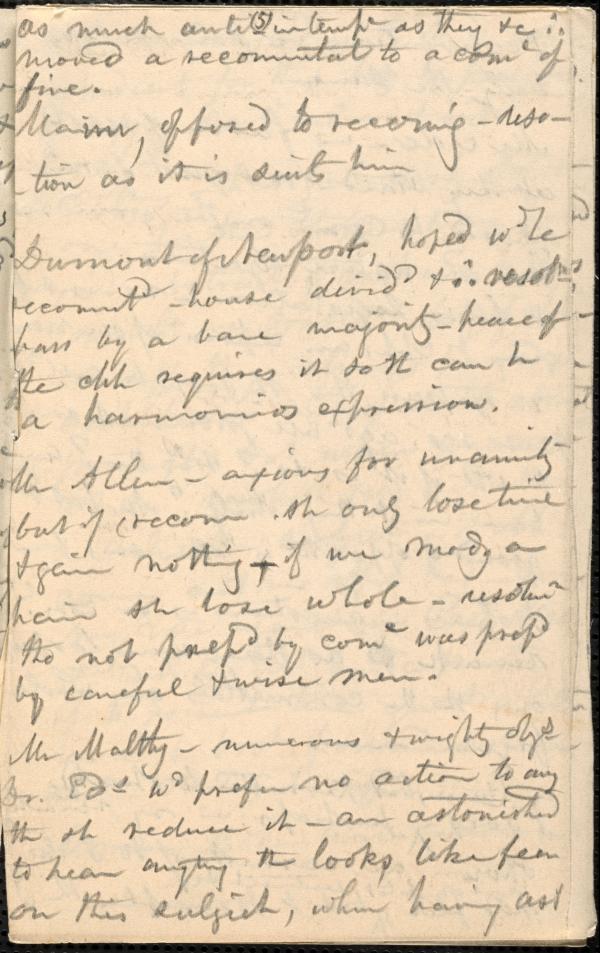 as much anti (5) intempe as they &c ∴
moved a recommital to a come of
five.
opposed to recomig - reso-
tion as it is suits him
Dumont of Newport, hoped wd be
recommitd - house dividd & ∴ resolns
pass by a bare majority - peace of
the chh requires it so tt can be
a harmonios expression.
Mr Allen - anxious for unanimity
but if recom. sh only lose time
& gain nothig + if we modg a
hair sh lose whole - resolun
tho not prepd by come was prepd
by careful & wise men.
Mr Maltby - numerous & wighty objns
Br. Eds wd prefer no action to any
tt sh reduce it - am astonished
to hear anythg tt looks like fear
on this subject, when having ast